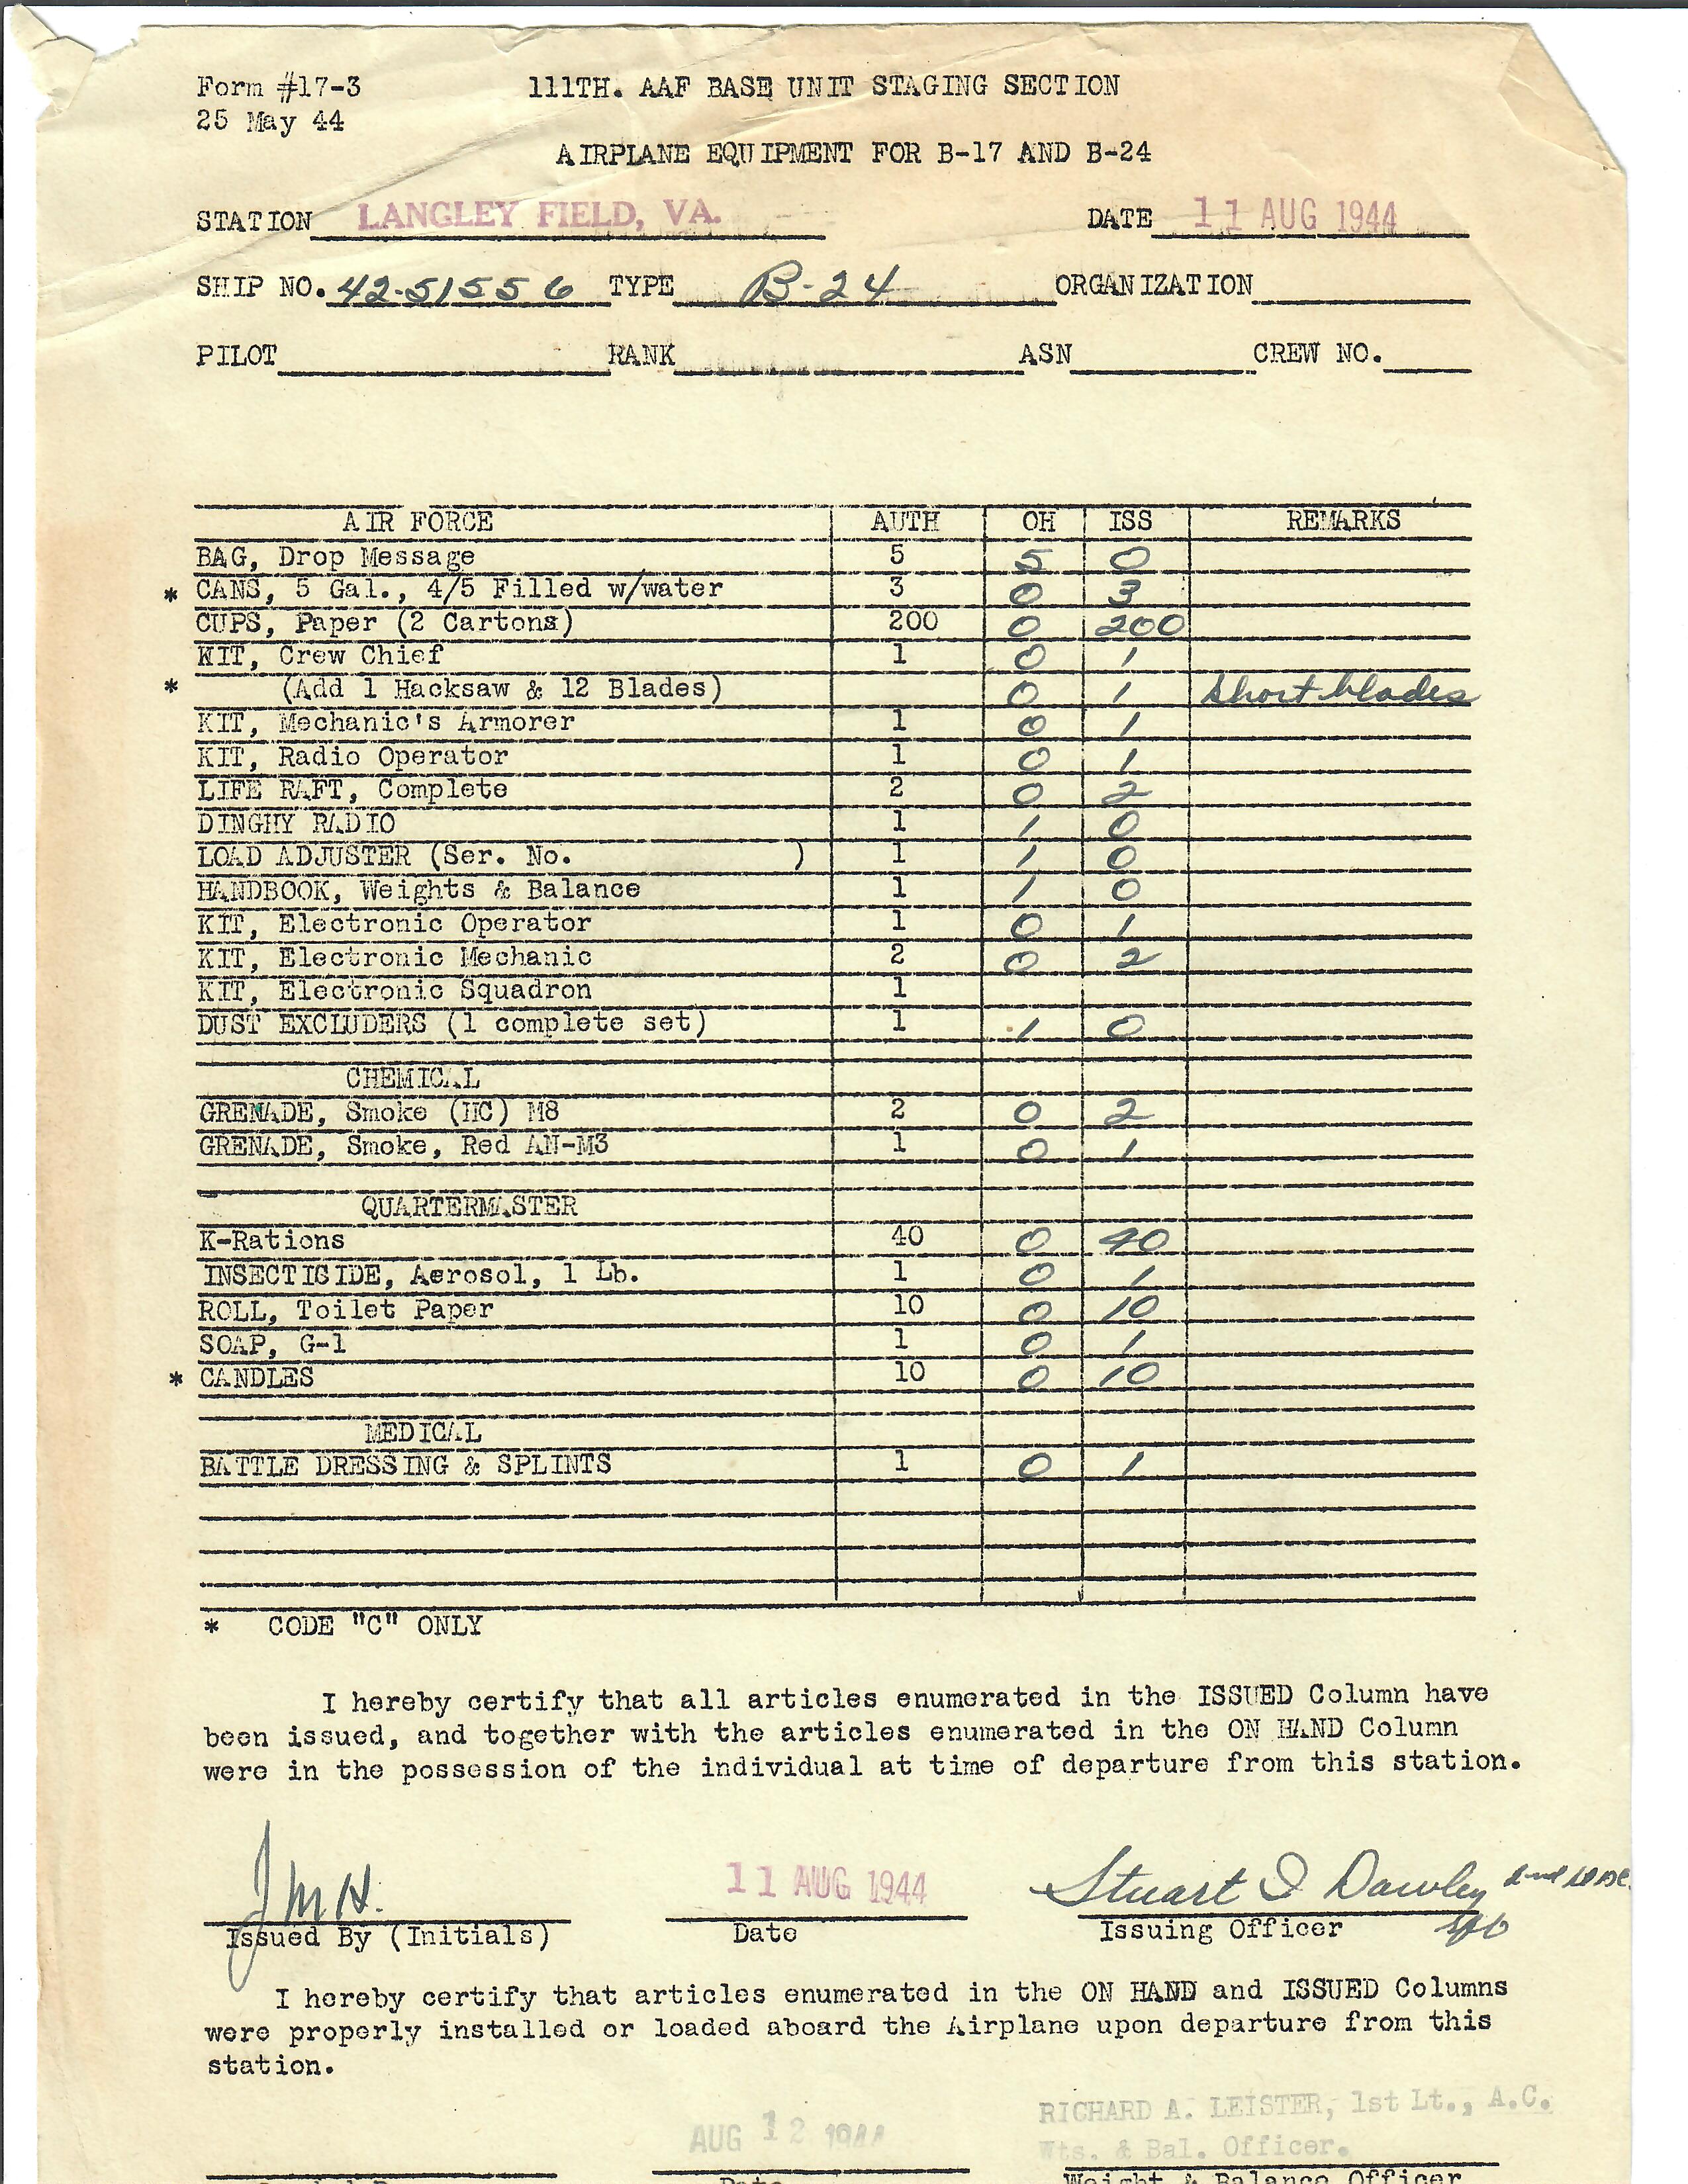 Form #17-3 111TH. AAF BASE UNIT STAGING SECTION
25 May 44
AIRPLANE EQUIPMENT FOR B-17 AND B-24
STATION LANGLEY FIELD, VA. DATE 11 AUG 1944
SHIP NO. 42-51556 TYPE B-24 ORGANIZATION
PILOT RANK ASN CREW NO.
AIR FORCE AUTH OH ISS REMARKS
BAG, Drop Message 5 5 0
* CANS, 5 Gal., 4/5 Filled w/water 3 0 3
CUPS, Paper (2 Cartons) 200 0 200
KIT, Crew Chief 1 0 1
* (Add 1 Hacksaw & 12 Blades) 0 1 Short blades
KIT, Mechanic's Armorer 1 0 1
KIT, Radio Operator 1 0 1
LIFE RAFT, Complete 2 0 2
DINGHY RADIO 1 1 0
LOAD ADJUSTER (Ser. No. ) 1 1 0
HANDBOOK, Weights & Balance 1 1 0
KIT, Electronic Operator 1 0 1
KIT, Electronic Mechanic 2 0 2
KIT, Electronic Squadron 1
DUST EXCLUDERS (1 complete set) 1 1 0
CHEMICAL
GRENADE, Smoke (HC) M8 2 0 2
GRENADE, Smoke, Red AN-M3 1 0 1
QUARTERMASTER
K-Rations 40 0 40
INSECTICIDE, Aerosol, 1 Lb. 1 0 1
ROLL, Toilet Paper 10 0 10
SOAP, G-1 1 0 1
* CANDLES 10 0 10
MEDICAL
BATTLE DRESSING & SPLINTS 1 0 1
* CODE "C" ONLY
I hereby certify that all articles enumerated in the ISSUED Column have
been issued, and together with the articles enumerated in the ON HAND Column
were in the possession of the individual at time of departure from this station.
JMH. 11 AUG 1944 Stuart I Dawley 2nd Lt
Issued By (Initials) Date Issuing Officer
I hereby certify that articles enumerated in the ON HAND and ISSUED Columns
were properly installed or loaded aboard the Airplane upon departure from this
station.
RICHARD A. LEISTER, 1st Lt., A.C.
AUG 12 1944 Wts. & Bal. Officer.
Date Weight & Balance Officer